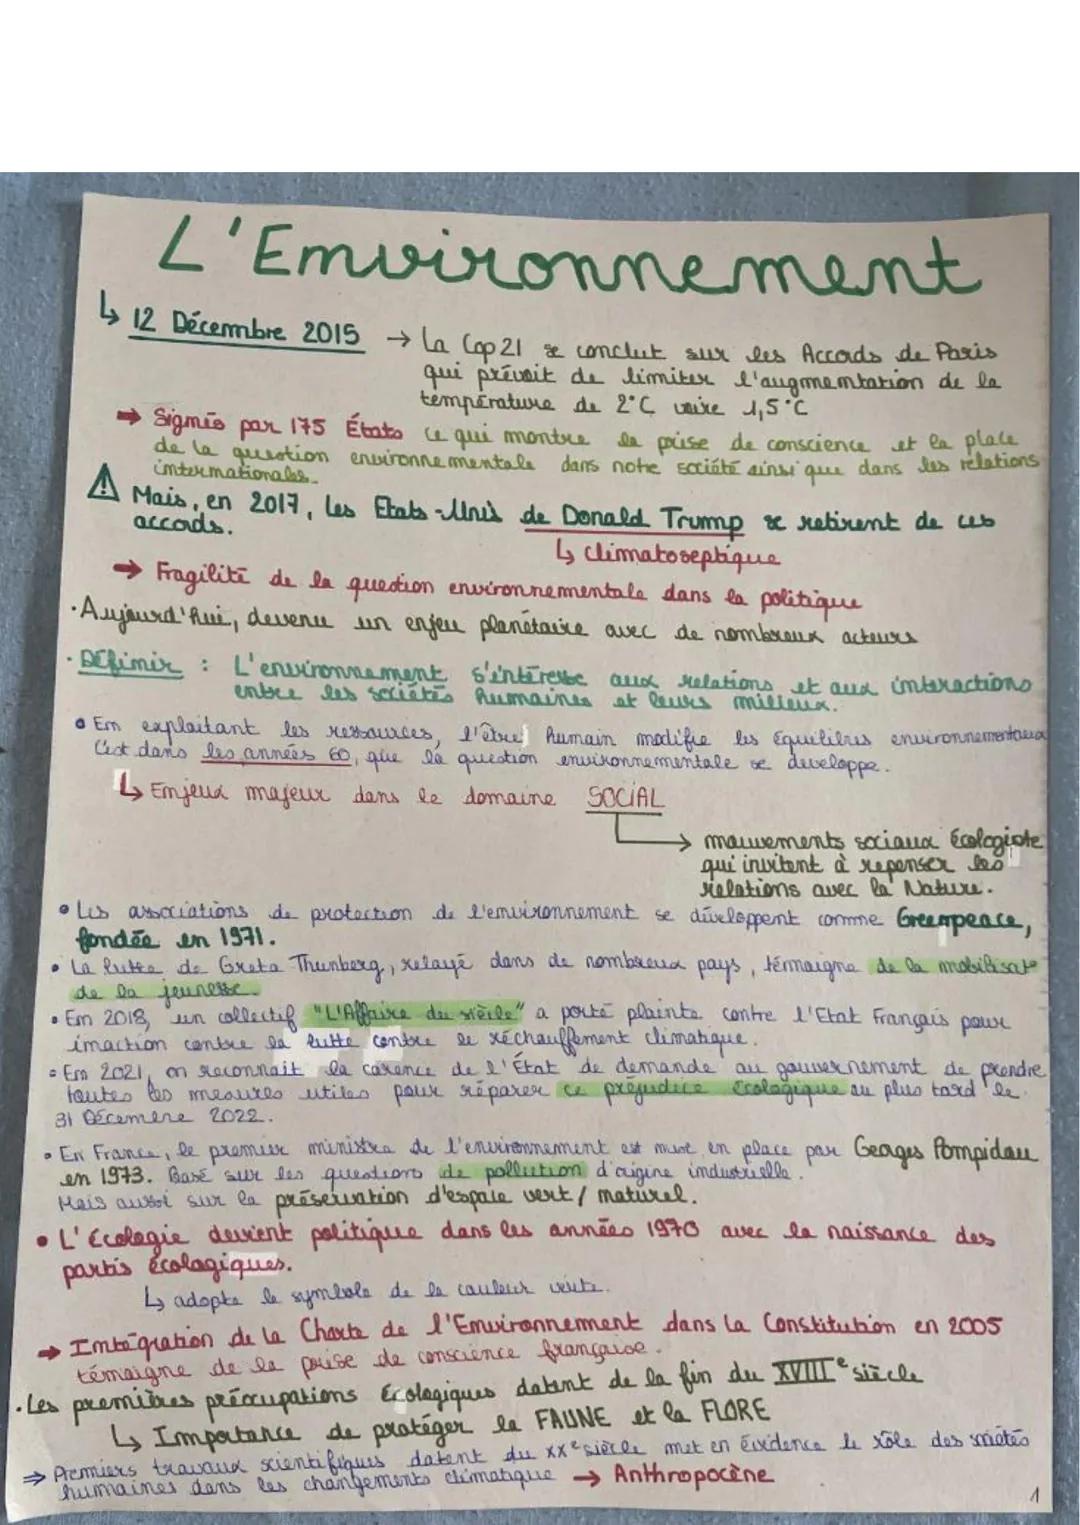 L'Environnement
↳ 12 Décembre 2015 → La Cop21 se conclut sur les Accords de Paris
qui prévoit de limiter l'augmentation de la
température de 2°C voire 1,5°C
→ Signés par 175 États ce qui montre la prise de conscience et la place
de la question environnementale dans notre société ainsi que dans les relations
internationales.
⚠ Mais, en 2017, les Etats-Unis de Donald Trump se retirent de ces
accords.
↳ climatoseptique
→ Fragilité de la question environnementale dans la politique
• Aujourd'hui, devenu un enjeu planétaire avec de nombreux acteurs
• Définir : L'environnement s'intéresse aux relations et aux interactions
entre les sociétés humaines et leurs milieux.
• En exploitant les ressources, l'être humain modifie les équilibres environnementaux
C'est dans les années 60, que la question environnementale se developpe.
↳ Enjeux majeur dans le domaine SOCIAL
→ mouvements sociaux écologiste
qui invitent à repenser les
relations avec la Nature.
• Les associations de protection de l'environnement se développent comme Greenpeace,
fondée en 1971.
• La lutte de Greta Thunberg, relayé dans de nombreux pays, témoigne de la mobilisat°
de la jeunesse.
• En 2018, un collectif "L'Affaire du siècle" a porté plainte contre l'Etat Français pour
inaction contre la lutte contre le réchauffement climatique.
• En 2021, on reconnait la carence de l'État de demande au gouvernement de prendre
toutes les mesures utiles pour réparer ce préjudice écologique au plus tard le
31 Décembre 2022.
• En France, le premier ministre de l'environnement est mise en place par Georges Pompidou
en 1973. Basé sur les questions de pollution d'origine industrielle.
Mais aussi sur la préservation d'espace vert / naturel.
• L'écologie devient politique dans les années 1970 avec la naissance des
partis écologiques.
↳ adopte le symbole de la couleur verte.
→ Intégration de la Charte de l'Environnement dans la Constitution en 2005
témoigne de la prise de conscience française.
• Les premières préocupations écologiques datent de la fin du XVIIIe siècle
↳ Importance de protéger la FAUNE et la FLORE
⇒ Premiers travaux scientifiques datent du XXe siècle met en évidence le rôle des sociétés
humaines dans les changements climatique → Anthropocène
1